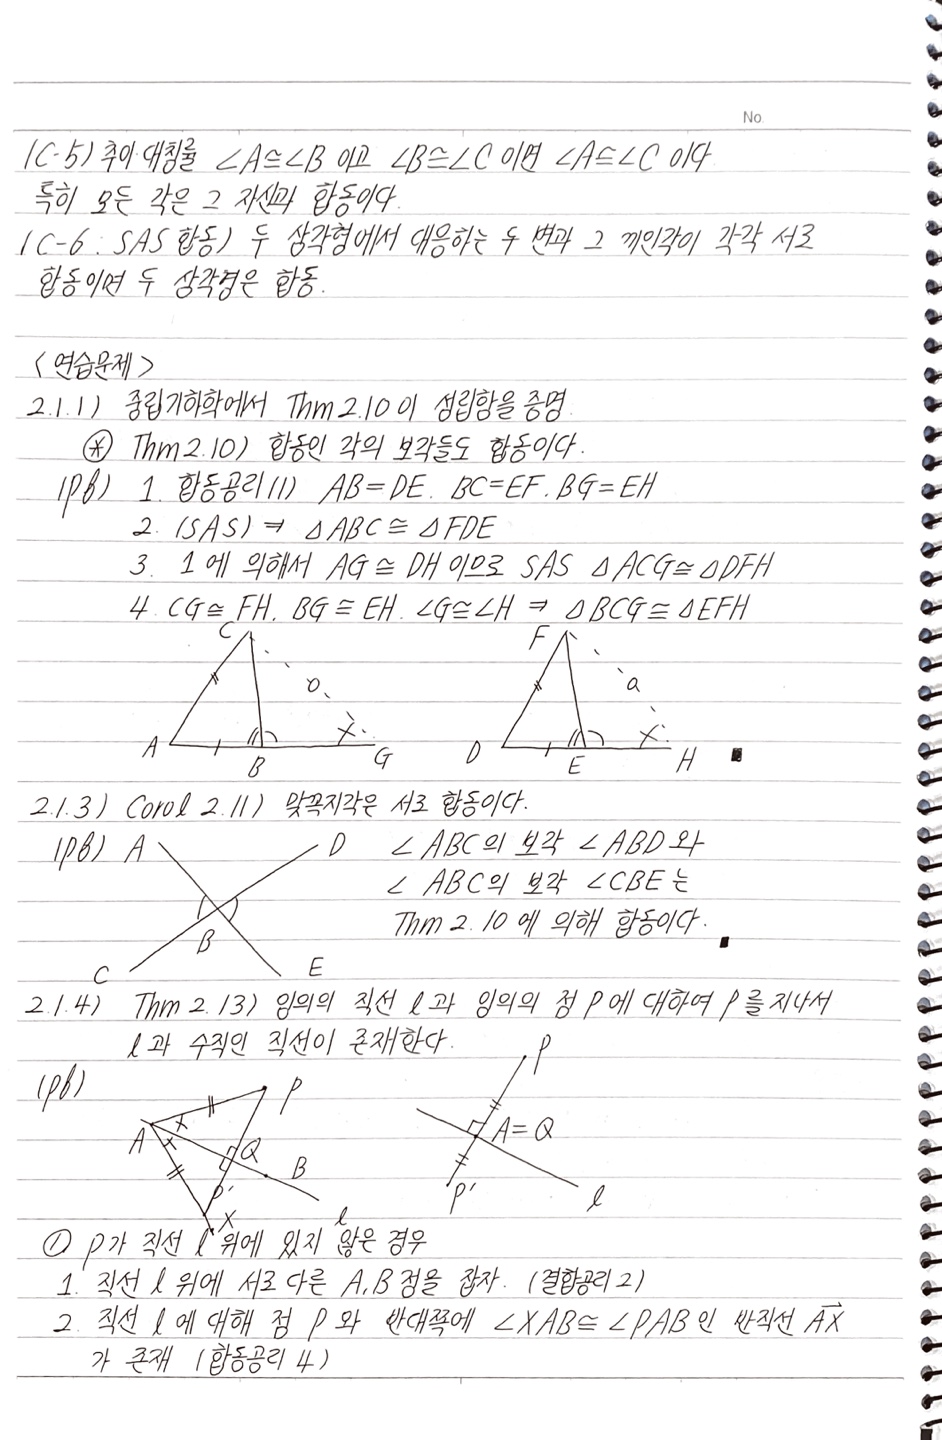 No.
(C-5) 추이·대칭률 ∠A≅∠B 이고 ∠B≅∠C 이면 ∠A≅∠C 이다
특히 모든 각은 그 자신과 합동이다.
(C-6 : SAS 합동) 두 삼각형에서 대응하는 두 변과 그 끼인각이 각각 서로
합동이면 두 삼각형은 합동.
<연습문제>
2.1.1) 중립기하학에서 Thm 2.10 이 성립함을 증명.
⊛ Thm 2.10) 합동인 각의 보각들도 합동이다.
(pf) 1. 합동공리(1) AB=DE. BC=EF. BG=EH
2. (SAS) ⇒ △ABC ≅ △FDE
3. 1에 의해서 AG ≅ DH 이므로 SAS △ACG≅△DFH
4. CG≅FH. BG≅EH. ∠G≅∠H ⇒ △BCG≅△EFH
C F
o a
A B X G D E X H
2.1.3) Corol 2.11) 맞꼭지각은 서로 합동이다.
(pf) A D ∠ABC의 보각 ∠ABD와
∠ABC의 보각 ∠CBE는
B Thm 2.10에 의해 합동이다.
C E
2.1.4) Thm 2.13) 임의의 직선 l과 임의의 점 P에 대하여 P를 지나서
l과 수직인 직선이 존재한다.
(pf) P P
A x x Q B A=Q
P' X l P' l
① P가 직선 l 위에 있지 않은 경우
1. 직선 l 위에 서로 다른 A, B 점을 잡자. (결합공리 2)
2. 직선 l에 대해 점 P와 반대쪽에 ∠XAB≅∠PAB인 반직선 AX
가 존재 (합동공리 4)